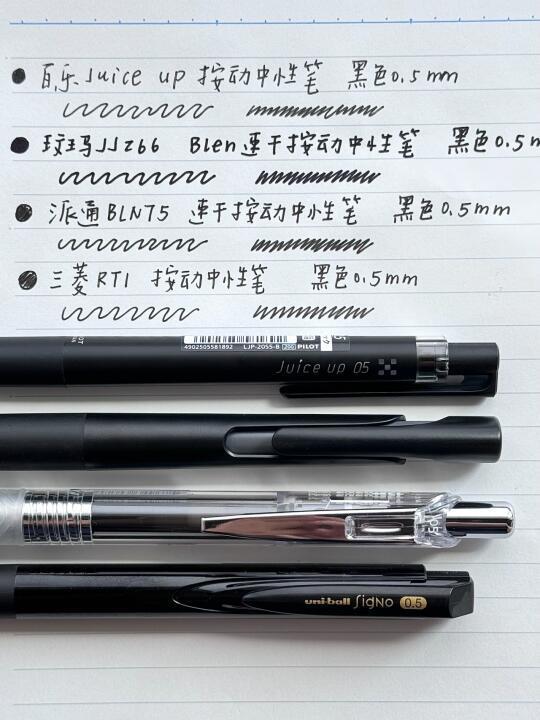 百乐Juice up 按动中性笔 黑色0.5mm
玟玛JJZ66 Blen速干按动中性笔 黑色0.5m
派通BLN75 速干按动中性笔 黑色0.5mm
三菱RT1 按动中性笔 黑色0.5mm
4902505581892 LJP-20S5-B 200 PILOT
Juice up 05
uni-ball SigNo 0.5